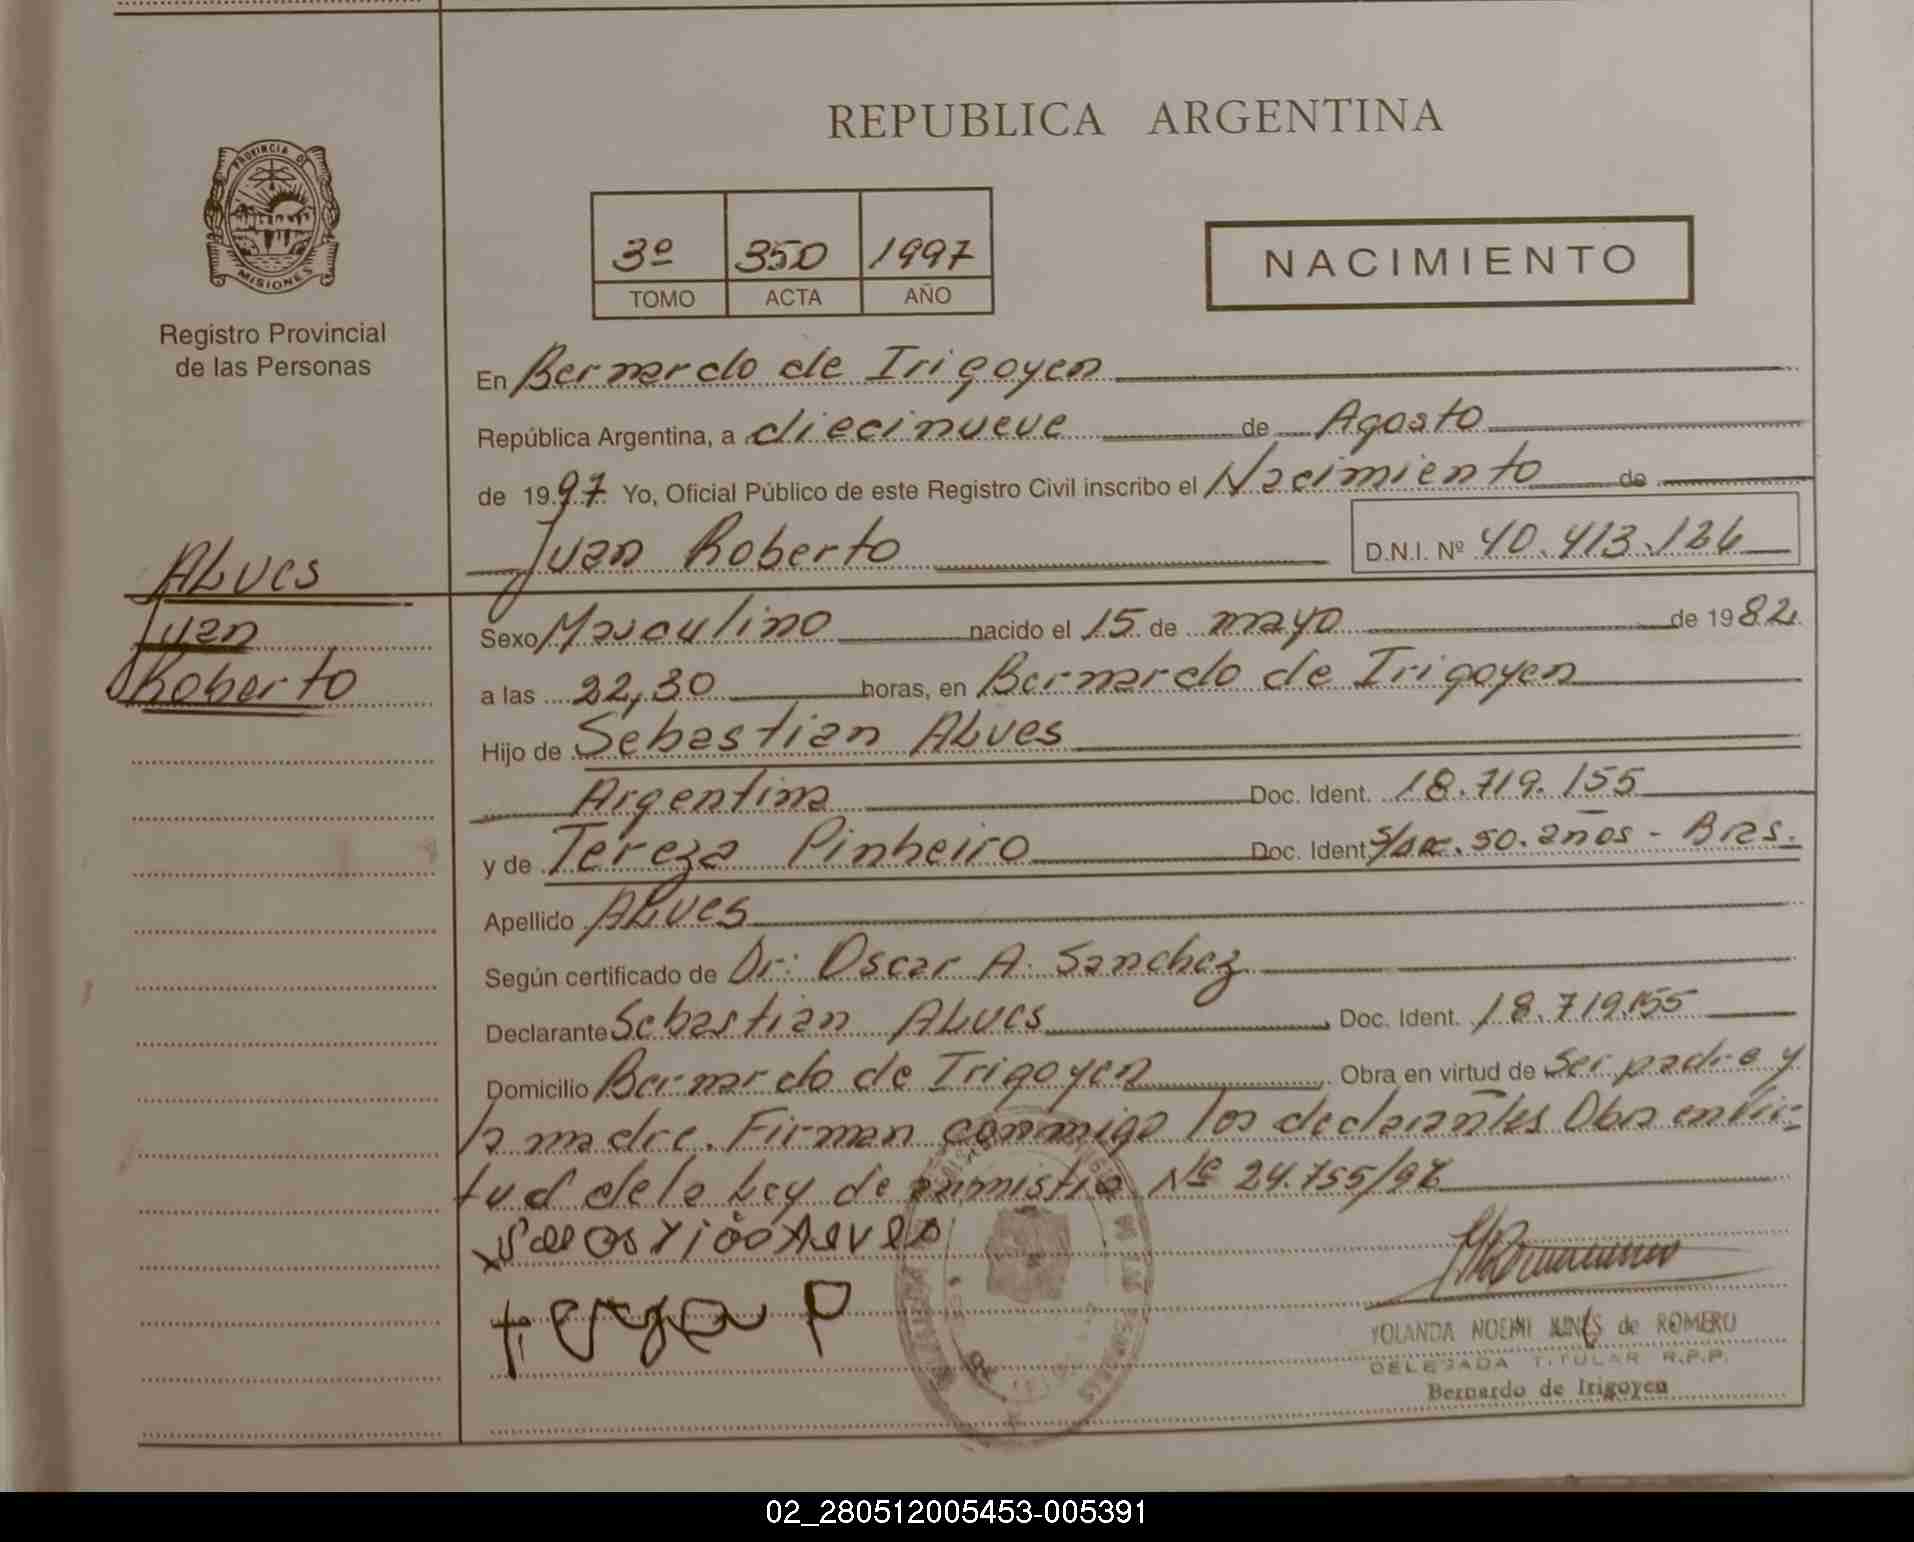 REPUBLICA ARGENTINA
PROVINCIA DE
MISIONES
Registro Provincial
de las Personas
3º 350 1997
TOMO ACTA AÑO
NACIMIENTO
En Bernardo de Irigoyen
República Argentina, a diecinueve de Agosto
de 1997 Yo, Oficial Público de este Registro Civil inscribo el Nacimiento de
Juan Roberto D.N.I. Nº 40.413.126
ALves
Juan
Roberto
Sexo Masculino nacido el 15 de mayo de 1982
a las 22,30 horas, en Bernardo de Irigoyen
Hijo de Sebastian ALves
Argentina Doc. Ident. 18.719.155
y de Tereza Pinheiro Doc. Ident. 50.años - Bras.
Apellido ALves
Según certificado de Dr: Oscar A. Sanchez
Declarante Sebastian ALves Doc. Ident. 18.719.155
Domicilio Bernardo de Irigoyen Obra en virtud de ser padre y
la madre. Firman conmigo los declarantes Obra en vir=
tud de la Ley de amnistia Nº 24.755/96
tereza P
YOLANDA NOEMI de ROMERO
DELEGADA TITULAR R.P.P.
Bernardo de Irigoyen
02_280512005453-005391